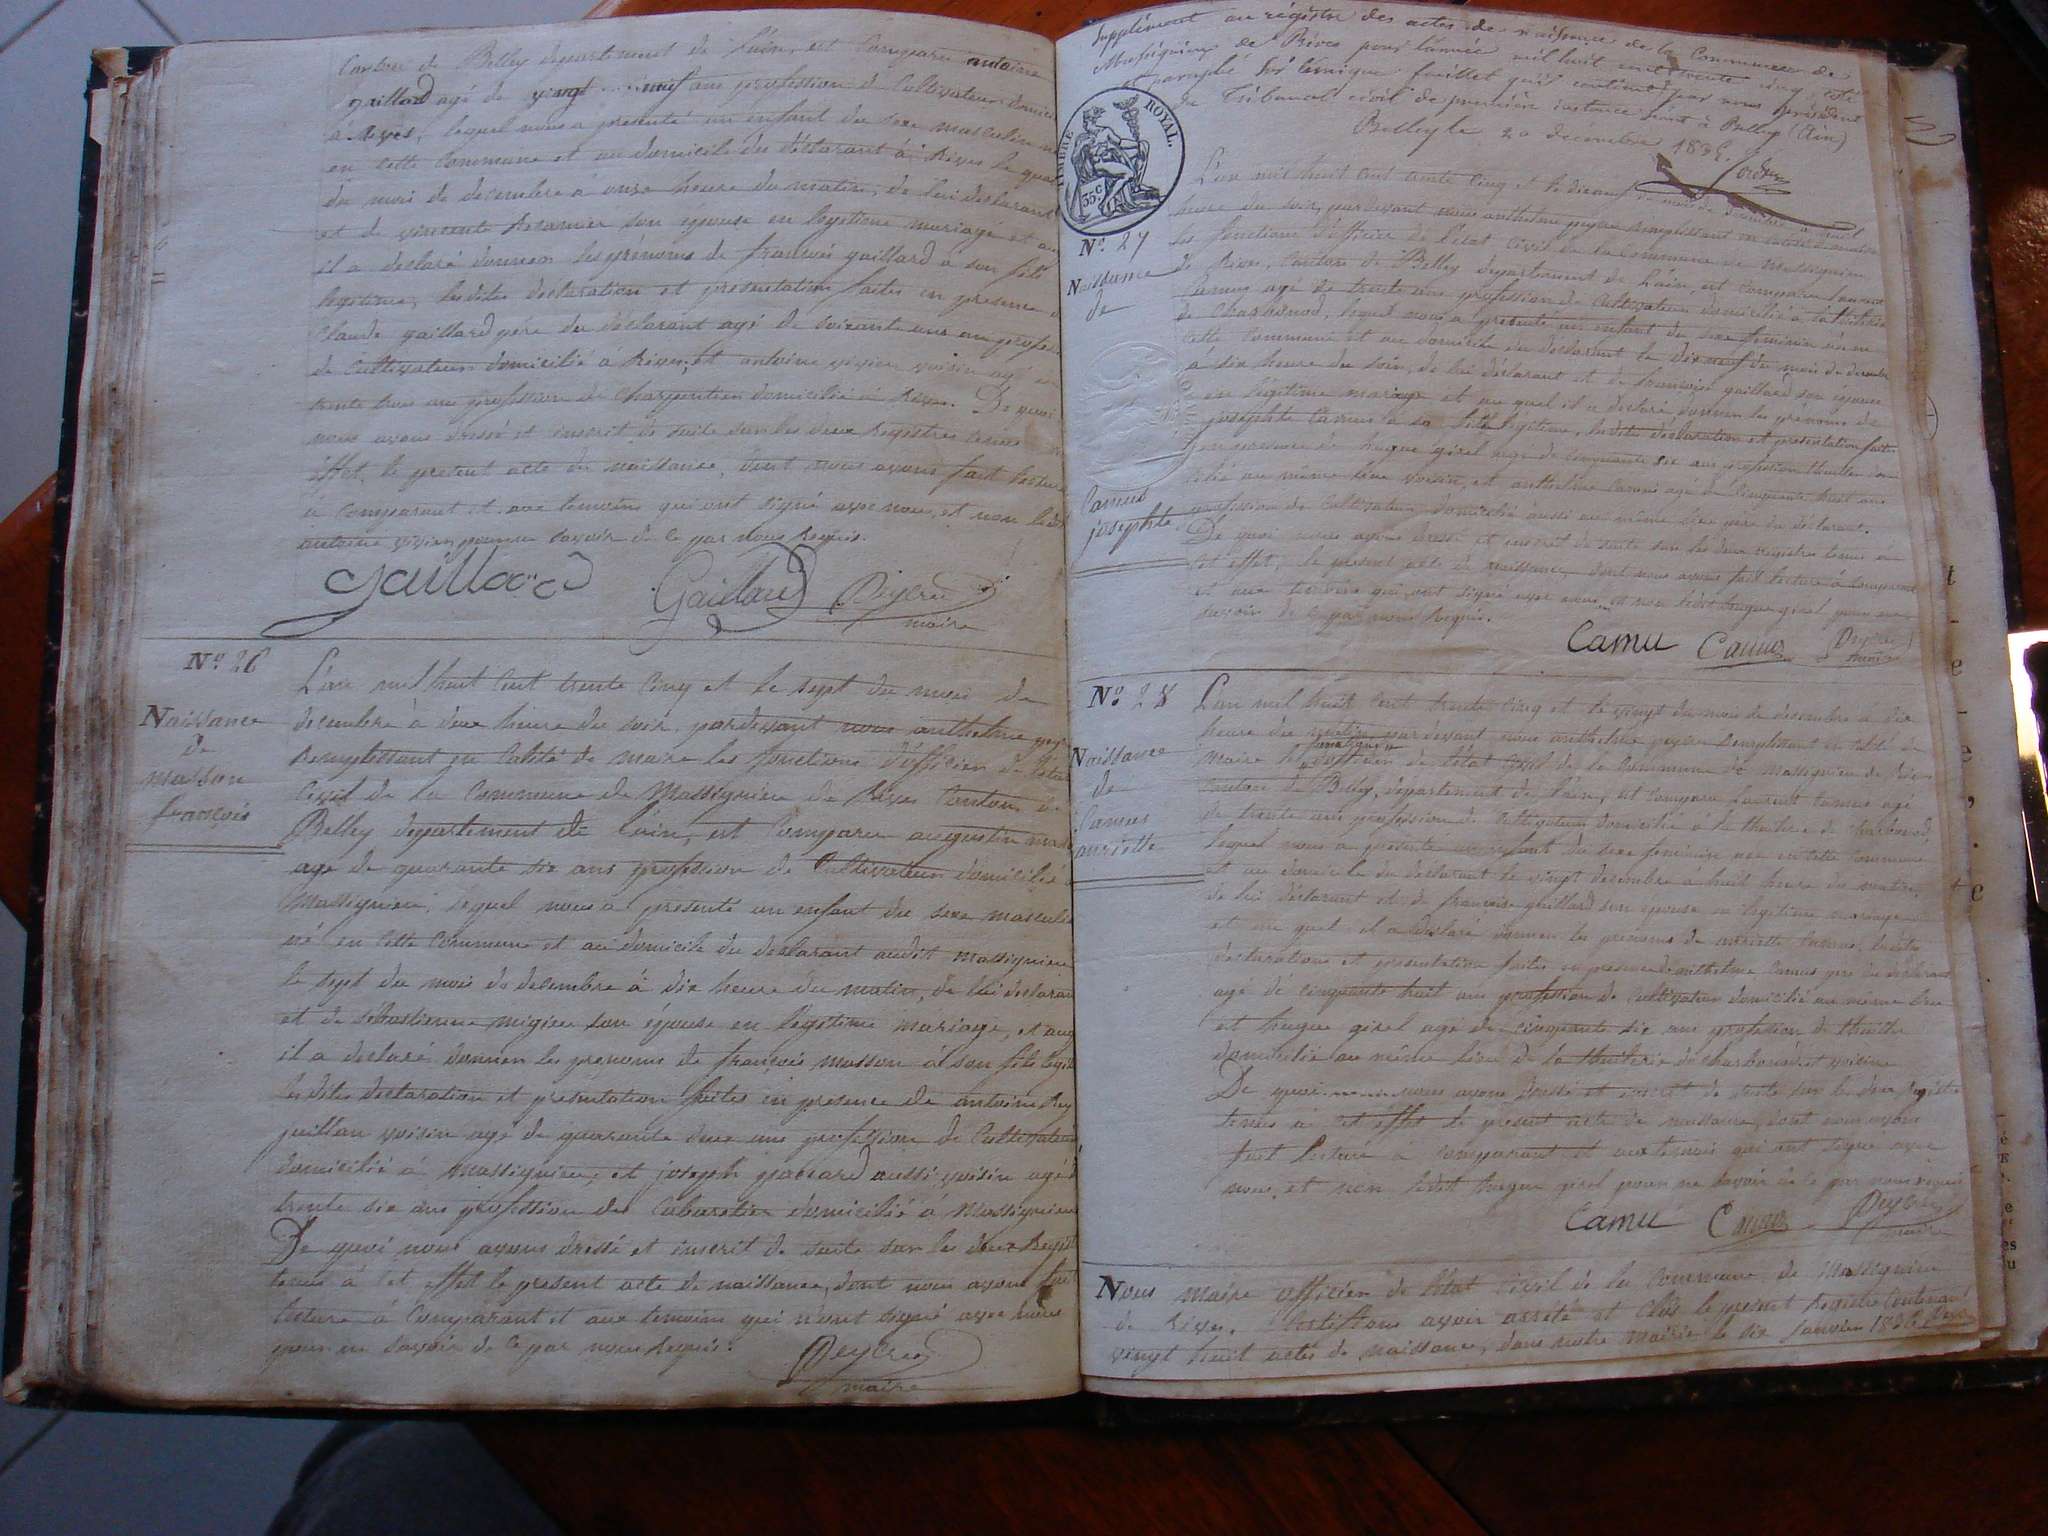 Canton de Belley departement de l'ain, est Comparu antoine
gaillard agé de vingt neuf ans profession de Cultivateur domicilié
à Rives, lequel nous a presenté un enfant du sexe masculin né
en cette Commune et au domicile du déclarant à Rives le
du mois de decembre à onze heure du matin, de lui déclarant
et de vincente son épouse en legitime mariage et
il a declaré donner les prénoms de françois gaillard à son fils
legitime, lesdites declaration et presentation faites en presence de
Claude gaillard père du déclarant agé de soixante ans profession
de Cultivateur domicilié à Rives, et antoine vivien voisin agé de
trente trois ans profession de Charpentier domicilié à Rives. De quoi
nous avons dressé et inscrit de suite sur les deux Registres tenus
effet, le present acte de naissance, dont nous avons fait lecture
à Comparant et aux temoins qui ont signé avec nous, et non ledit
antoine vivien pour ne savoir de ce par nous Requis.
Gaillard Gaillard Peyzieu
maire
Nº 26
Naissance
de
masson
françois
L'an mil huit Cent trente Cinq et le sept du mois de
decembre à deux heure du soir, pardevant nous anthelme
Remplissant en Calité de maire les fonctions d'officier de l'état
Civil de la Commune de Massignieu de Rives Canton de
Belley departement de l'ain, est Comparu augustin masson
agé de quarante six ans profession de Cultivateur domicilié à
Massignieu, lequel nous a presenté un enfant du sexe masculin
né en cette Commune et au domicile du declarant audit massignieu
le sept du mois de decembre à dix heure du matin, de lui declarant
et de sébastienne migieu son épouse en legitime mariage, et
il a declaré donner les prenoms de françois masson à son fils
lesdites declaration et presentation faites en presence de antoine
guillon voisin agé de quarante deux ans profession de Cultivateur
domicilié à massignieu, et joseph aussi voisin agé de
trente six ans profession de Cabaretier domicilié à Massignieu
De quoi nous avons dressé et inscrit de suite sur les deux Registres
tenus à cet effet le present acte de naissance, dont nous avons fait
lecture à Comparant et aux temoins qui n'ont signé avec nous
pour ne savoir de ce par nous Requis.
Peyzieu
maire
Supplément au régistre des actes de naissance de la Commune de
Massignieu de Rives pour l'année mil huit cent trente cinq, coté
et paraphé sur l'unique feuillet qu'il contient par nous président
du Tribunal civil de première instance séant à Belley (Ain)
Belley le 20 decembre 1835.
TIMBRE ROYAL
35.C
Nº 27
Naissance
de
Camus
josephte
L'an mil huit Cent trente Cinq et le dixneuf du mois de decembre à
heure du soir, pardevant nous anthelme peyzieu Remplissant en calité de maire
les fonctions d'officier de l'etat Civil de la Commune de massignieu
de Rives, Canton de Belley departement de l'ain, est Comparu laurent
Camus agé de trente ans profession de Cultivateur domicilié à la thuilerie
de Charbonod, lequel nous a presenté un enfant du sexe feminin né en
cette Commune et au domicile du declarant le dixneuf du mois de decembre
à dix heure du soir, de lui déclarant et de françoise gaillard son épouse
en legitime mariage et au quel il a declaré donner les prénoms de
josephte Camus à sa fille legitime, lesdites declaration et presentation faites
en presence de hugue girel agé de cinquante six ans profession thuillier
au même lieu voisin, et anthelme Camus agé de Cinquante huit ans
profession de Cultivateur domicilié aussi au même lieu père du déclarant.
De quoi nous avons dressé et inscrit de suite sur les deux registres tenus à
cet effet, le present acte de naissance, dont nous avons fait lecture à Comparant
et aux temoins qui ont signé avec nous, et non ledit hugue girel pour ne
savoir de ce par nous Requis.
Camu Camus Peyzieu
maire
Nº 28
Naissance
de
Camus
anriette
L'an mil huit Cent trente Cinq et le vingt du mois de decembre à dix
heure du matin pardevant nous anthelme peyzieu Remplissant en calité de
maire les fonctions d'officier de l'état Civil de la Commune de massignieu de Rives
Canton de Belley, departement de l'ain, est Comparu laurent Camus agé
de trente ans profession de Cultivateur domicilié à la thuilerie de Charbonod,
lequel nous a presenté un enfant du sexe feminin né en cette Commune
et au domicile du declarant le vingt decembre à huit heure du matin,
de lui déclarant et de françoise gaillard son épouse en legitime mariage
et au quel il a declaré donner les prenoms de anriette Camus, lesdites
declarations et presentation faites en presence de anthelme Camus père du déclarant
agé de cinquante huit ans profession de Cultivateur domicilié au même lieu
et hugue girel agé de cinquante six ans profession de thuillier
domicilié au même lieu de la thuilerie de Charbonod et voisin
De quoi nous avons dressé et inscrit de suite sur les deux Registres
tenus à cet effet le present acte de naissance, dont nous avons
fait lecture à Comparant et aux temoins qui ont signé avec
nous, et non ledit hugue girel pour ne savoir de ce par nous requis
Camu Camus Peyzieu
maire
Nous maire officier de l'état Civil de la Commune de Massignieu
de Rives. Certifions avoir arreté et Clos le present Registre Contenant
vingt huit actes de naissance, dans notre mairie le dix Janvier 1836